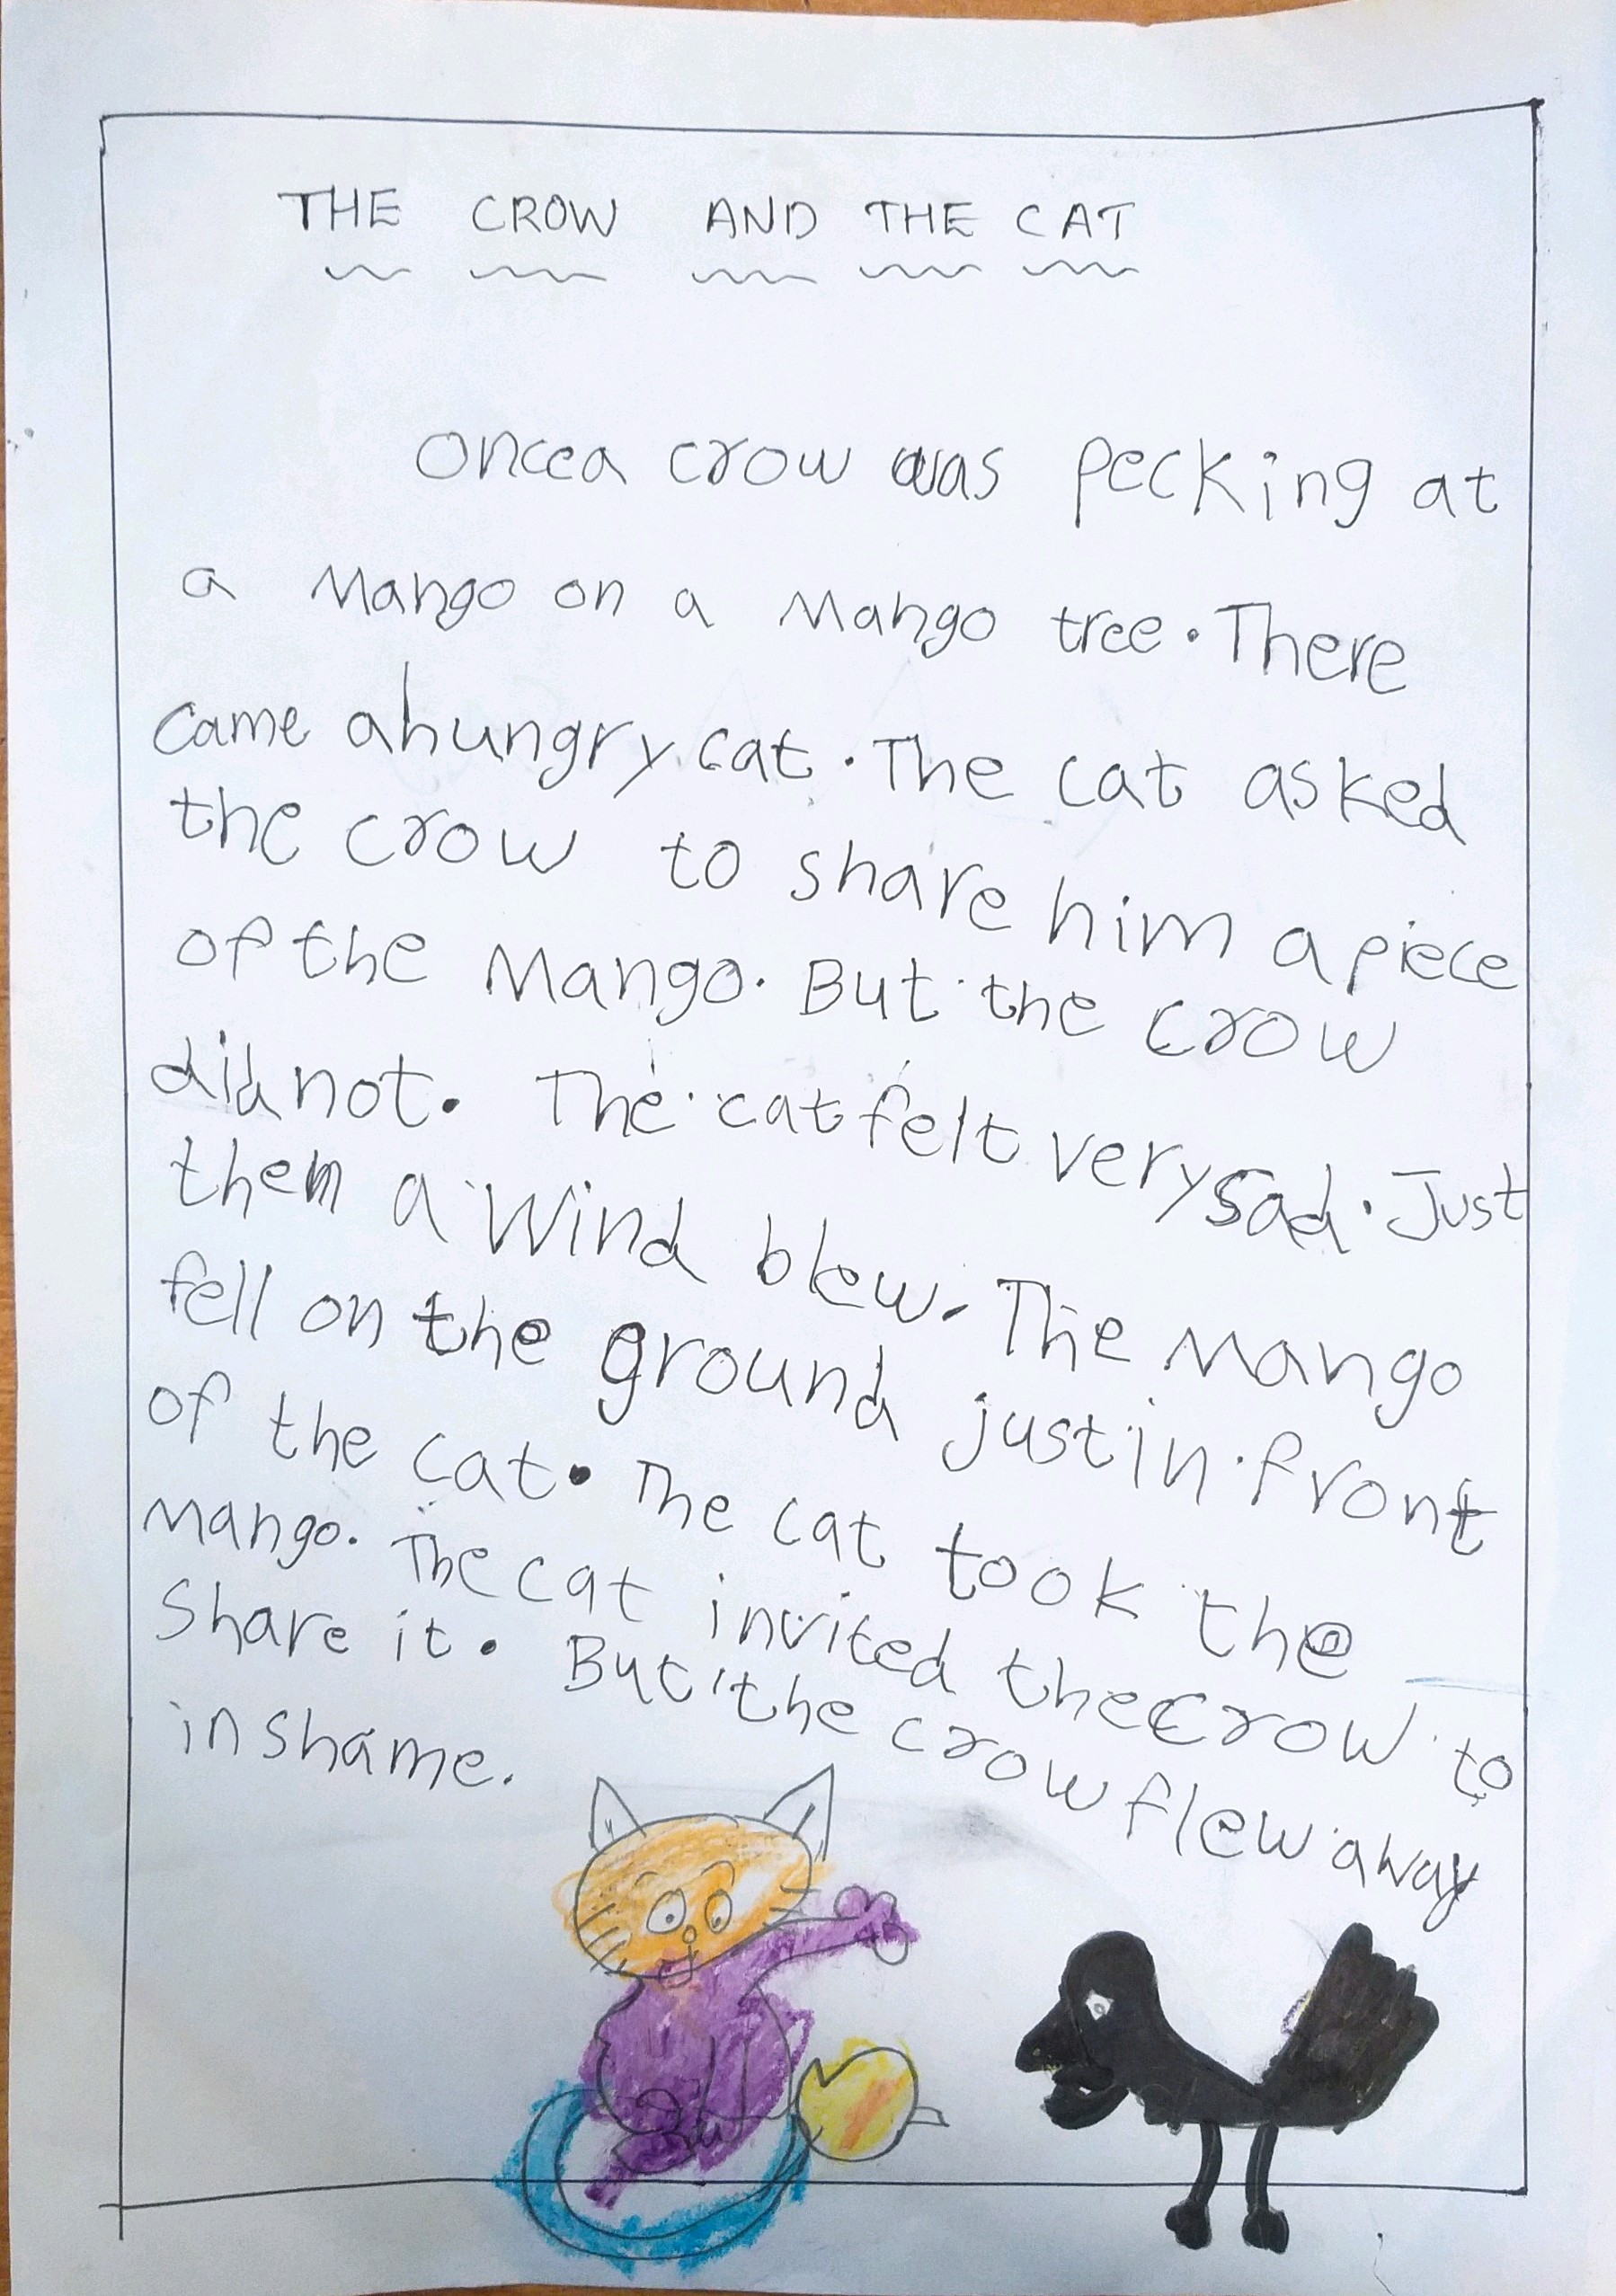 THE CROW AND THE CAT
Oncea crow was pecking at
a Mango on a Mango tree. There
came ahungry cat. The cat asked
the crow to share him a piece
of the Mango. But the crow
did not. The cat felt very sad. Just
them a Wind blew. The Mango
fell on the ground just in front
of the cat. The cat took the
Mango. The cat invited the Crow to
Share it. But the crow flew away
in shame.